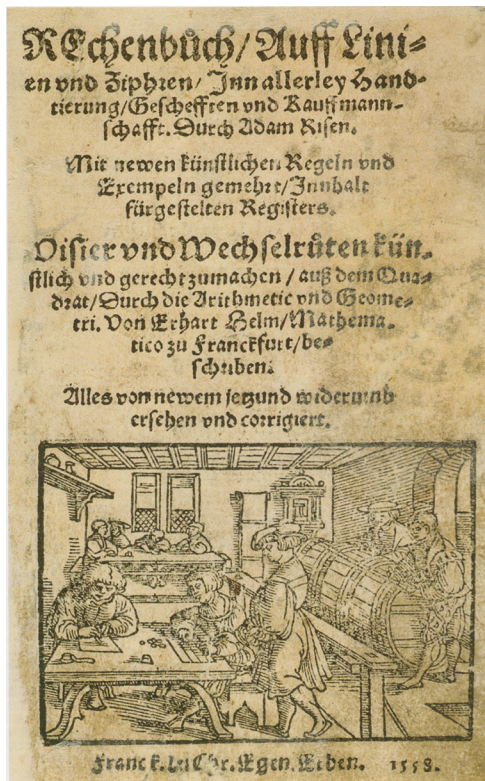 REchenbůch/ Auff Lini-
en vnd Ziphren/ Jnn allerley Hand-
tierung/ Geschefften vnd Kauffmann-
schafft. Durch Adam Risen.
Mit newen künstlichen Regeln vnd
Exempeln gemehrt/ Jnnhalt
fürgestelten Registers.
Visier vnd Wechselrůten kün-
stlich vnd gerecht zumachen/ auß dem Qua-
drat/ Durch die Arithmetic vnd Geome-
tri. Von Erhart Helm/ Mathema-
tico zu Franckfurt/ be-
schriben.
Alles von newem jetzund widerumb
ersehen vnd corrigiert.
Franck. bei Chr. Egen. Erben. 1558.